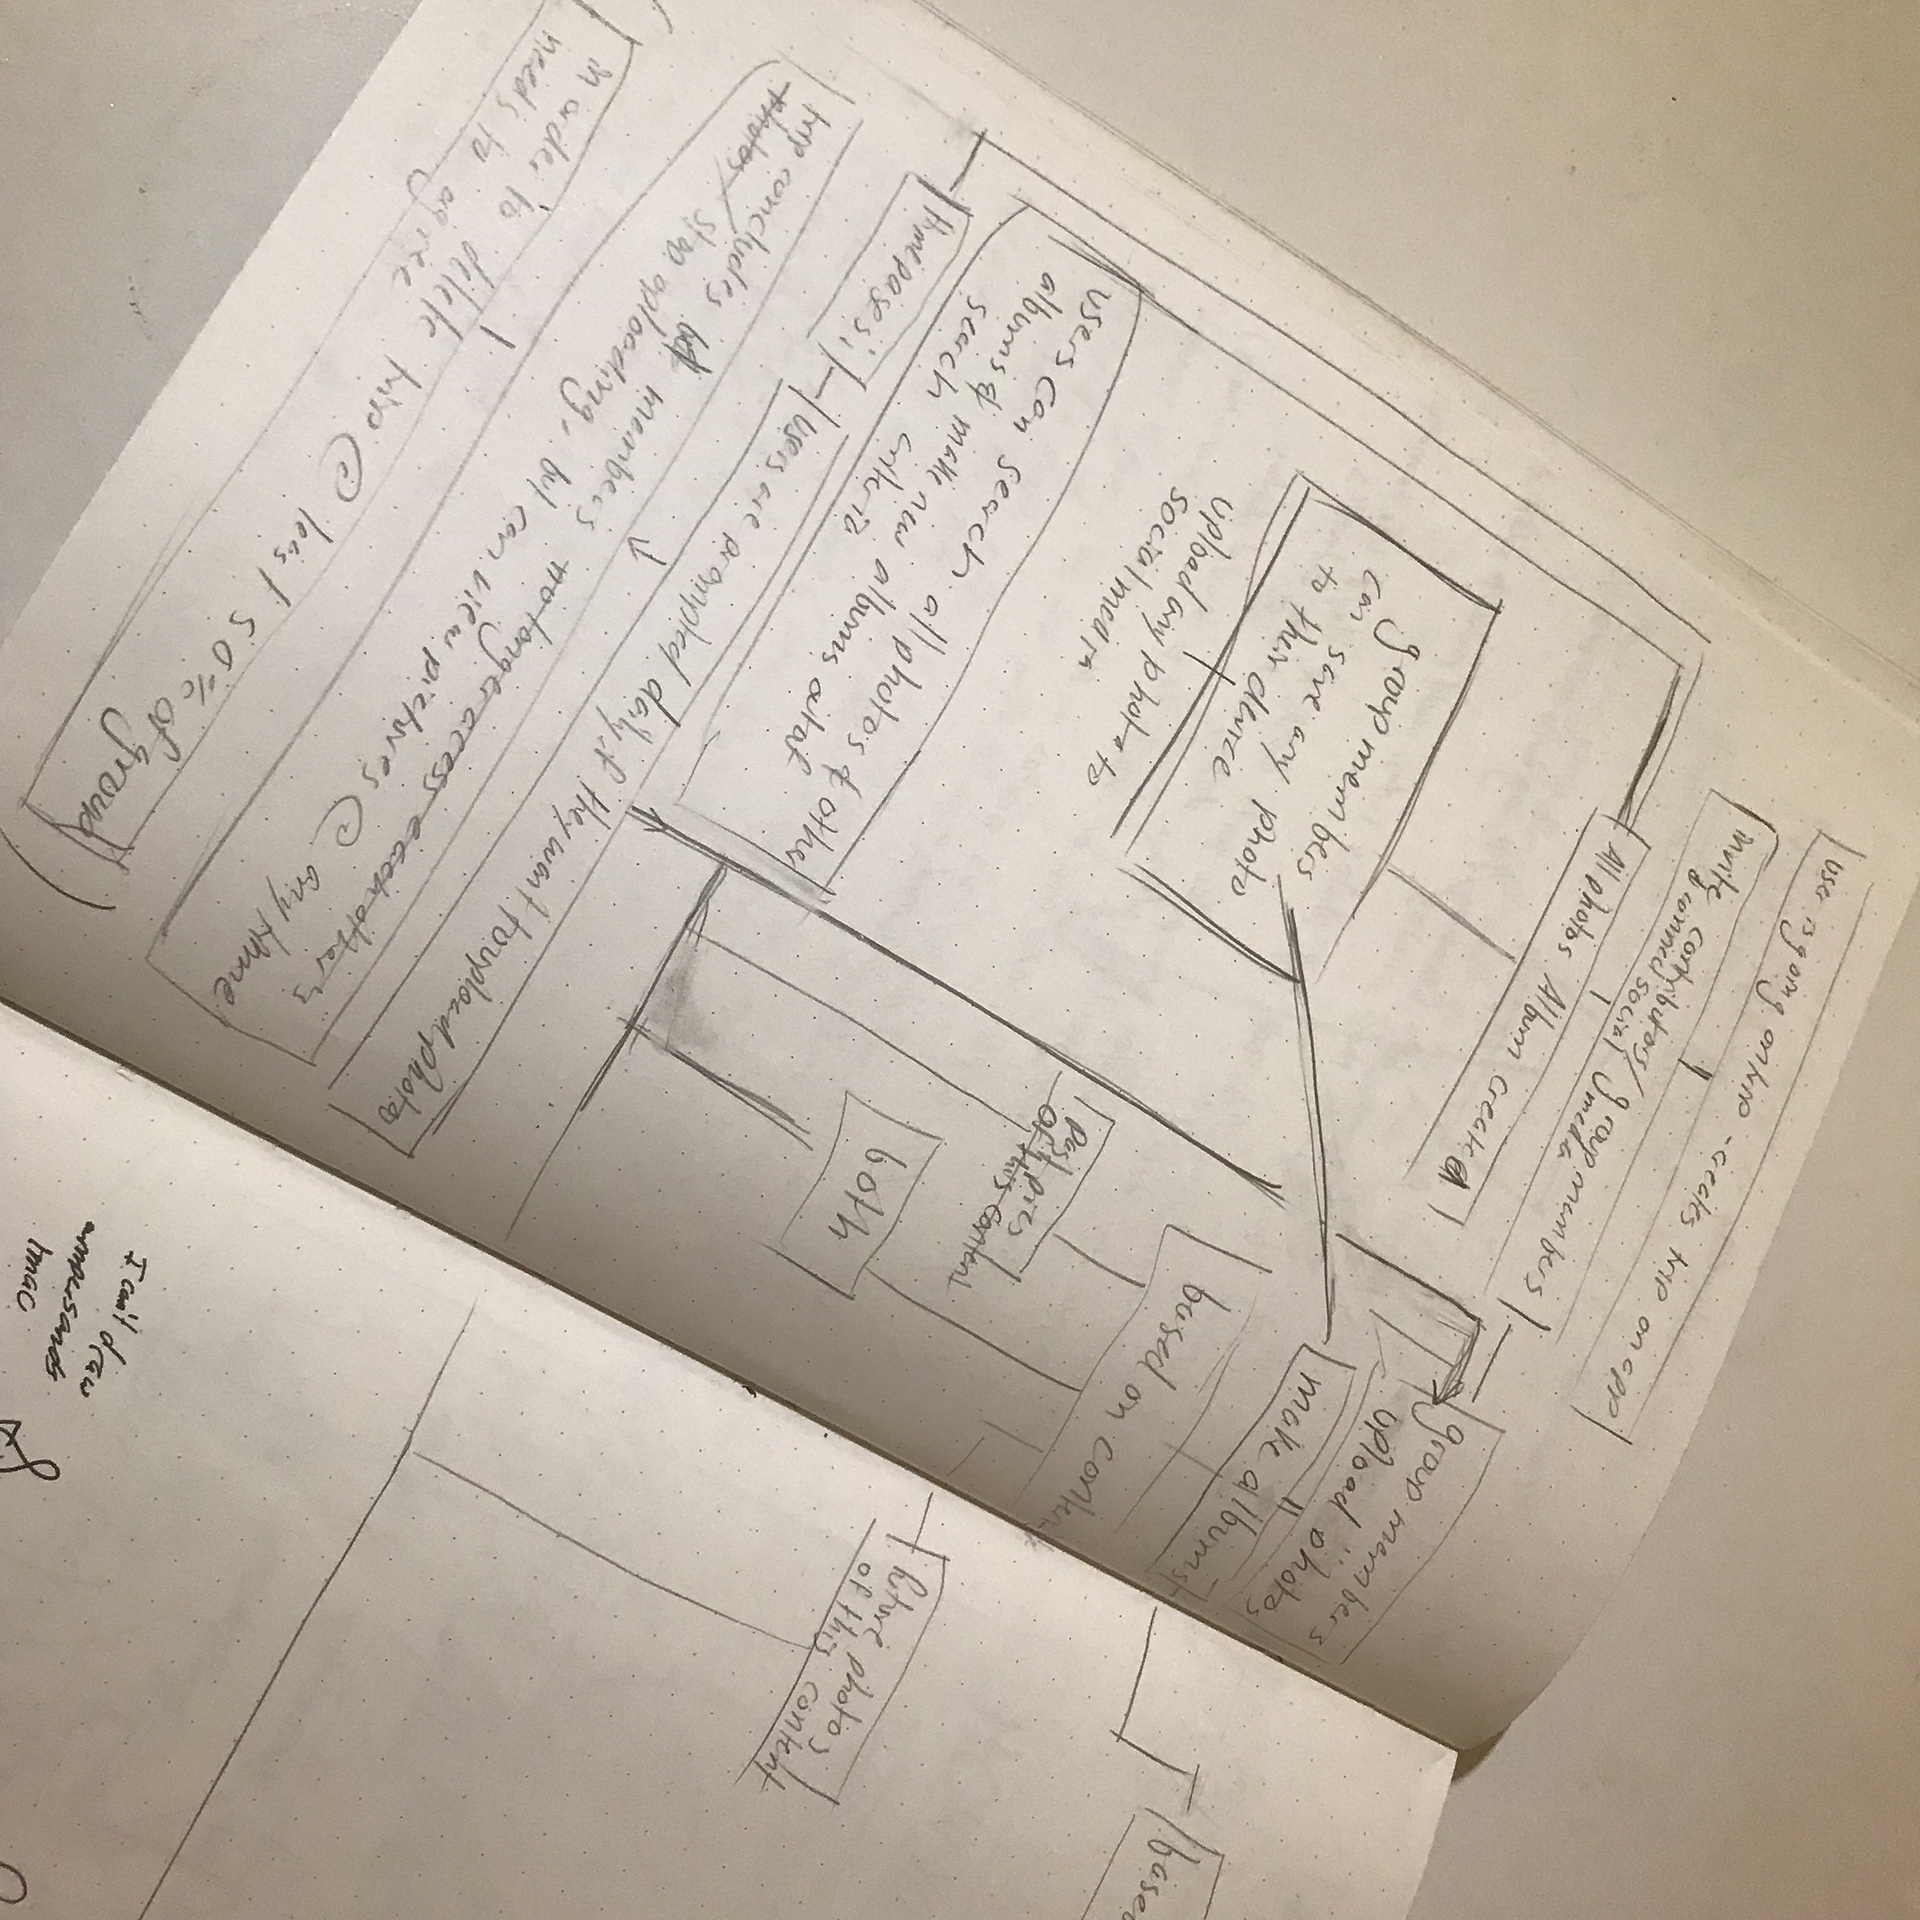 user is going on trip - creates trip on app
invite contributors/group members
connect social media
All photos Album created
group members
upload photos
make albums
based on content
group members
can save any photo
to their device
upload any photo to
social media
Past pics
of this content
both
users can search all photos & other
albums & make new albums out of
search criteria
time passes;
users are prompted daily if they want to upload photos
trip concludes members no longer access each other's
photos/ stop uploading, but can view pictures @ any time
in order to delete trip @ least 50% of group
needs to agree
future photos
of this content
based
I can't draw
ampersands
lmao